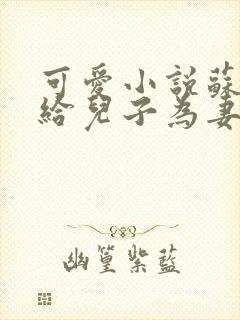 可愛小說蘇
給兒子為妻
幽篁紫藍